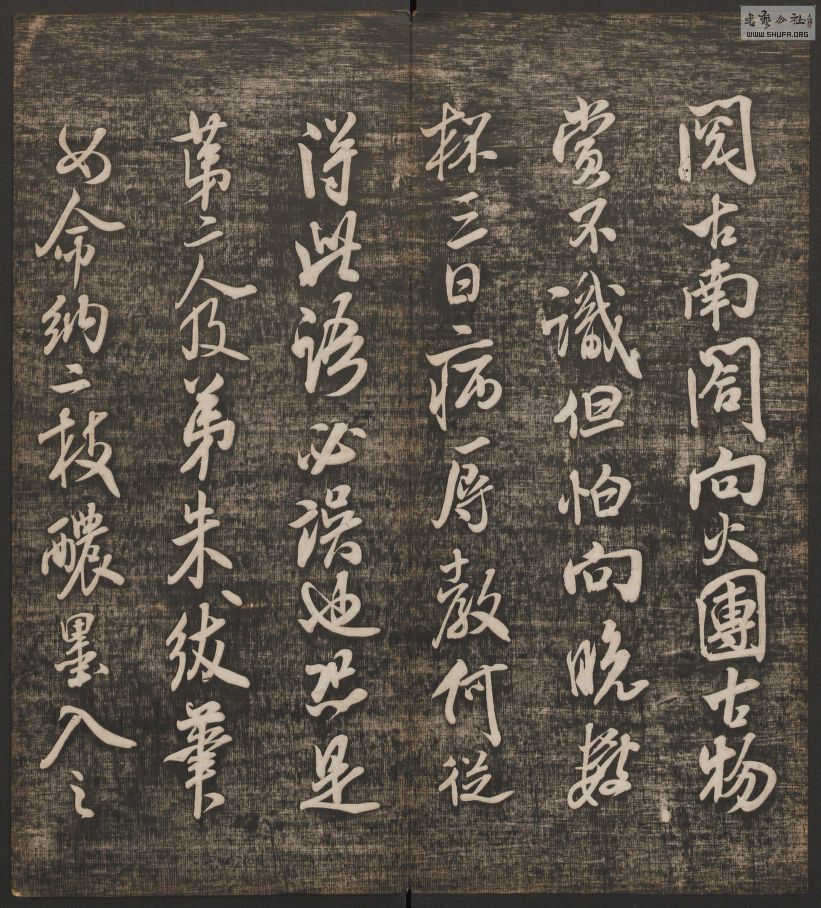 閱古南閣向火團古物
賞不識但怕向晚數
杯三日病辱教何從
得此語必誤也恐是
第二人及弟朱紱筆
如命納二枝醲墨入之
書藝公社
WWW.SHUFA.ORG